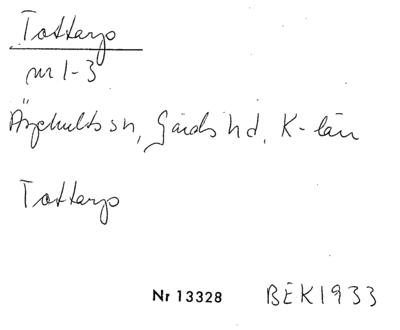 Tottarp
nr 1-3
Äsphults sn, Gärds hd, K-län
Tottarp
Nr 13328 BEK1933